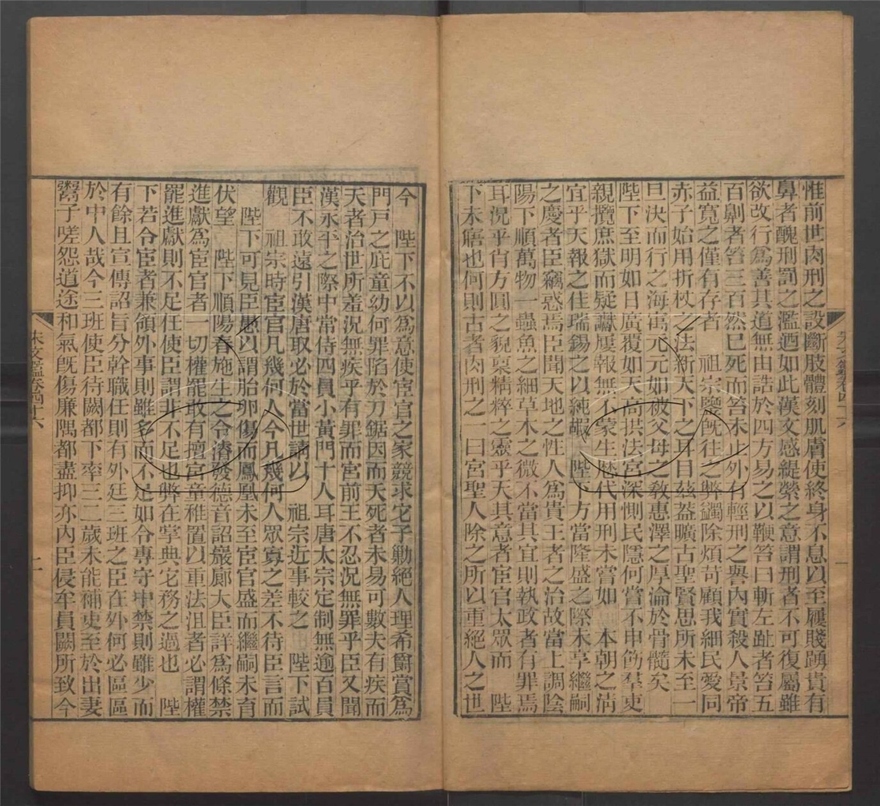 惟前世肉刑之設斷肢體刻肌膚使終身不息以至屨賤踴貴有
鼻者醜刑罰之濫迺如此漢文感緹縈之意謂刑者不可復屬雖
欲改行為善其道無由詰於四方易之以鞭笞曰斬左趾者笞五
百劓者笞三百然已死而笞未止外有輕刑之譽內實殺人景帝
益寬之僅有存者 祖宗鑒既往之弊蠲除煩苛顧我細民愛同
赤子始用折杖之法新天下之耳目茲葢曠古聖賢思所未至一
旦決而行之海㝢元元如被父母之敎惠澤之厚淪於骨髓矣
陛下至明如日廣覆如天高拱法宮深惻民隱何嘗不申飭羣吏
親攬庶獄而疑讞屢報無不蒙生歴代用刑未嘗如 本朝之清
宜乎天報之佳瑞錫之以純嘏 陛下方當隆盛之際未享繼嗣
之慶者臣竊惑焉臣聞天地之性人為貴王者之治故當上調陰
陽下順萬物一蟲魚之細草木之微不當其宜則執政者有罪焉
耳況乎肖方圓之貌稟精粹之靈乎天其意者宦官太眾而 陛
下未寤也何則古者肉刑之一曰宮聖人除之所以重絕人之世
今 陛下不以為意使宦官之家競求它子勦絕人理希爵賞為
門戸之庇童幼何罪陷於刀鋸因而夭死者未易可數夫有疾而
夭者治世所羞況無疾乎有罪而宮前王不忍況無罪乎臣又聞
漢永平之際中常侍四員小黃門十人耳唐太宗定制無逾百員
臣不敢遠引漢唐取必於當世請以 祖宗近事較之 陛下試
觀 祖宗時宦官凡幾何人今凡幾何人眾寡之差不待臣言而
陛下可見臣愚以謂胎卵傷而鳳凰未至宦官盛而繼嗣未育
伏望 陛下順陽春施生之令濬發德音詔嚴廊大臣詳為條禁
進獻為宦官者一切權罷敢有擅宮童稚置以重法沮者必謂權
罷進獻則不足任使臣謂非不足也弊在掌典它務之過也 陛
下若令宦者兼領外事則雖多而不足如令專守中禁則雖少而
有餘且宣傳詔旨分幹職任則有外廷三班之臣在外何必區區
於中人哉今三班使臣待闕都下率三二歲未能補吏至於出妻
鬻子嗟怨道途和氣旣傷廉隅都盡抑亦內臣侵牟員闕所致今
宋文鑑卷四十六
一
宋文鑑卷四十六
二